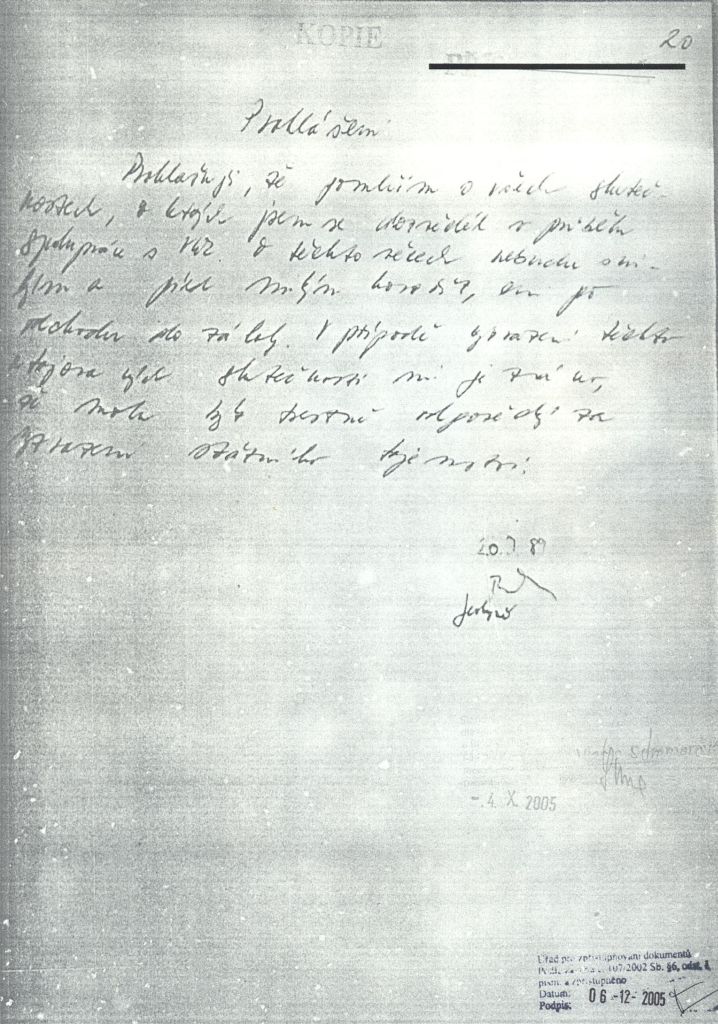 KOPIE
20
Prohlášení
Prohlašuji, že pomlčím o všech skuteč-
nostech, o kterých jsem se dozvěděl v průběhu
spolupráce s VKR. O těchto věcech nebudu s ni-
kým a před nikým hovořit, ani po
odchodu do zálohy. V případě vyzrazení těchto
utajovaných skutečností mi je známo,
že mohu být trestně odpovědný za
vyzrazení státního tajemství.
20. 89
- 4. X. 2005
Úřad pro zpřístupňování dokumentů
107/2002 Sb. §6, odst.
zpřístupněno
Datum: 06 -12- 2005
Podpis: